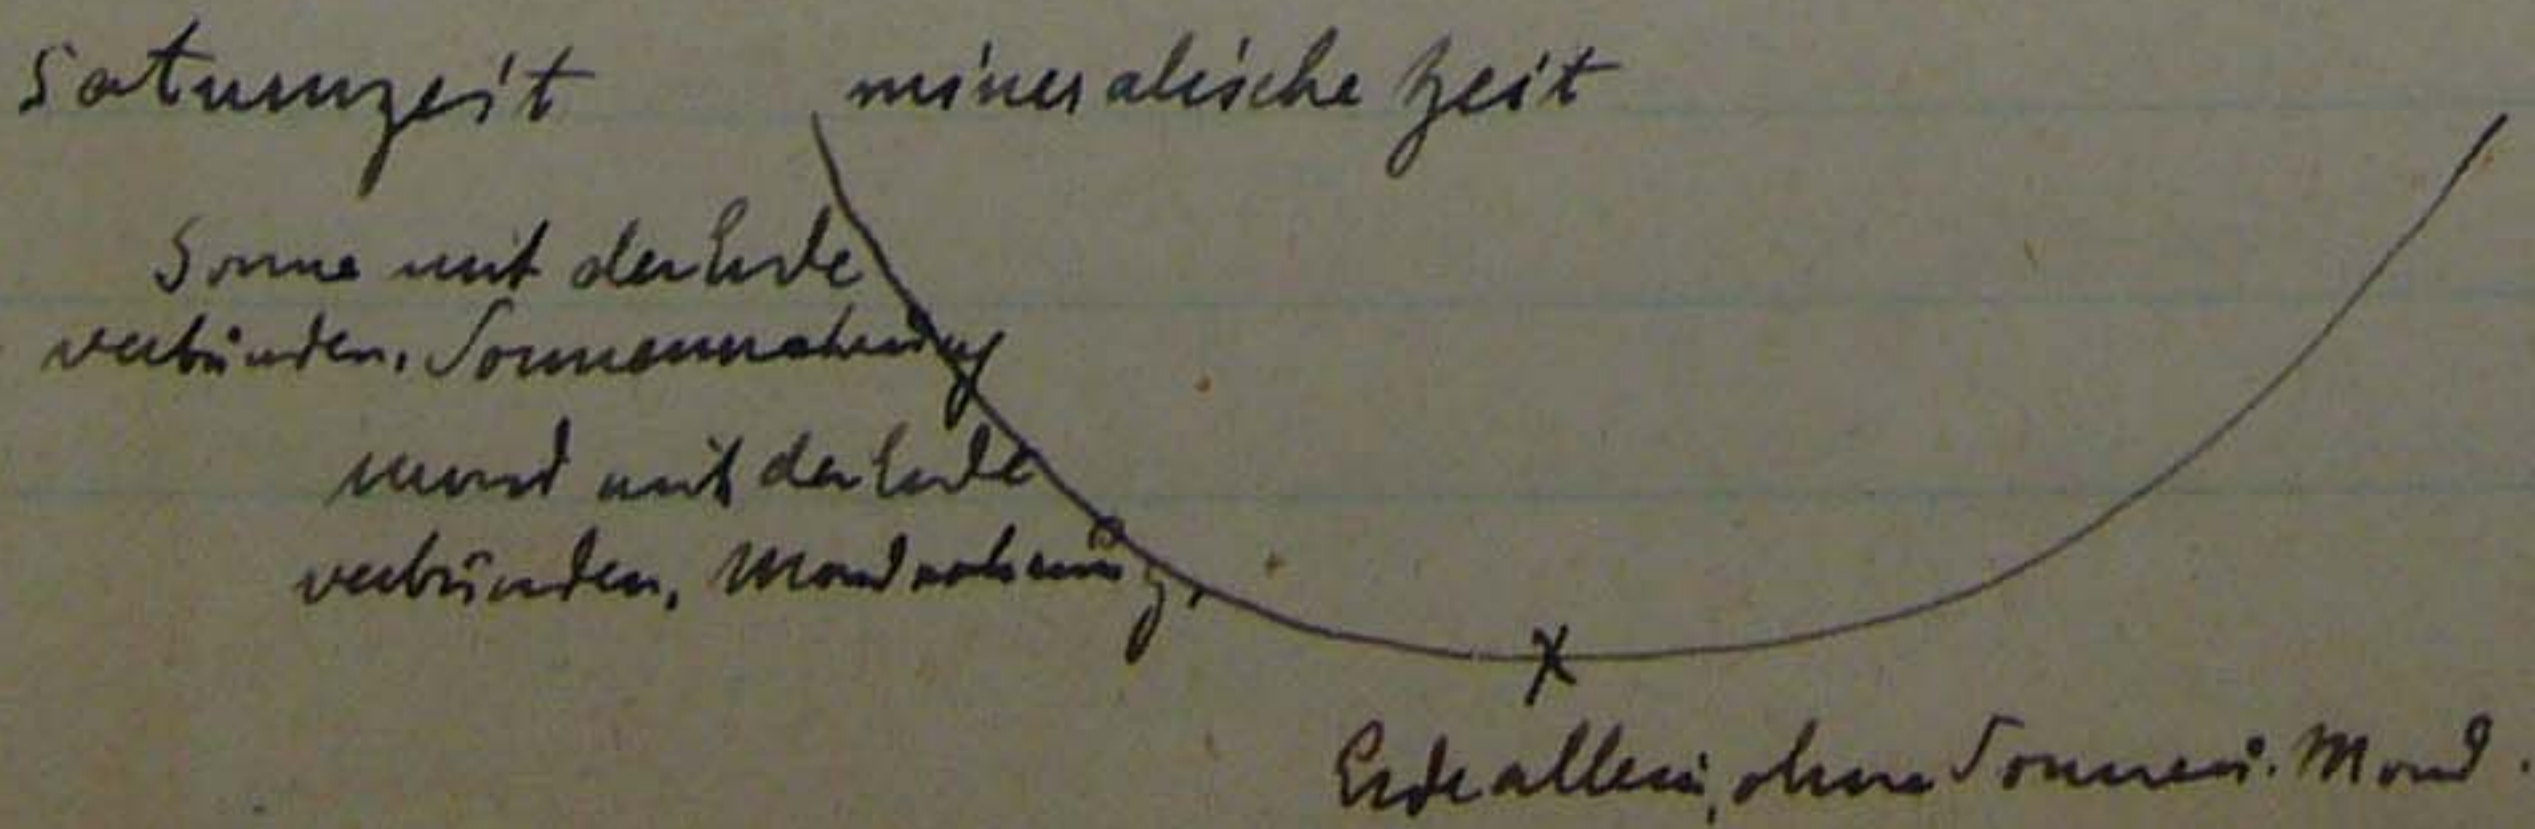 Saturnzeit mineralische Zeit
Sonne mit der Erde
verbunden. Sonnennahrung
Mond mit der Erde
verbunden, Mondnahrung,
x
Erde allein, ohne Sonne u. Mond.